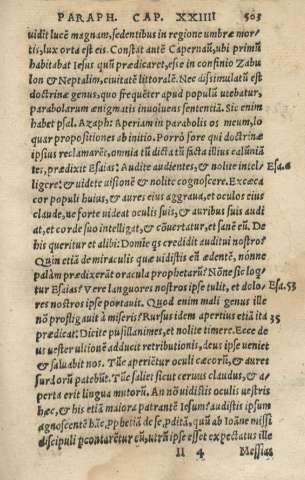 PARAPH. CAP. XXIIII 505
uidit lucẽ magnam, sedentibus in regione umbræ mor-
tis, lux orta est eis. Constãt autẽ Capernaũ, ubi primũ
habitabat Iesus quũ prædicaret, esse in confinio Zabu
lon & Neptalim, ciuitatẽ littoralẽ. Nec dissimulatũ est
doctrinæ genus, quo frequẽter apud populũ utebatur,
parabolarum ænigmatis inuoluens sententiã. Sic enim
habet psal. Azaph: Aperiam in parabolis os meum, lo
quar propositiones ab initio. Porrò fore qui doctrinã
ipsius reclamarẽt, omnia tũ dicta tũ facta illius caluniã
tes, prædixit Esaias: Audite audientes, & nolite intel- Esa. 6
ligere: & uidete uisionẽ & nolite cognoscere. Excæca
cor populi huius, & aures eius aggraua, et oculos eius
claude, ne forte uideat oculis suis, & auribus suis audi
at, et corde suo intelligat, & cõuertatur, et sanẽ eũ. De
his queritur et alibi: Domine qs credidit auditui nostro?
Quin etiã de miraculis quæ uidistis eũ ædentẽ, nonne
palàm prædixerãt oracula prophetarũ? Nõne sic loq̃
tur Esaias? Vere languores nostros ipse tulit, et dolo Esa. 53
res nostros ipse portauit. Quod enim mali genus ille
nõ profligauit à miseris? Rursus idem apertius etiã ita 35
prædicat: Dicite pusillanimes, et nolite timere. Ecce de
us uester ultionẽ adducet retributionis, deus ipse ueniet
& saluabit nos. Tũc aperiẽtur oculi cæcorũ, & aures
surdorũ patebũt. Tũc saliet sicut ceruus claudus, & a-
perta erit lingua mutorũ. An nõ uidistis oculis uestris
hæc, & his etiã maiora patrantẽ Iesum? audistis ipsum
agnoscentẽ hãc, pphetiã de se ditã, quũ ab Ioãne missi
discipuli pcontarẽtur eũ, utrũ ipse esset expectatus ille
II 4 Messias